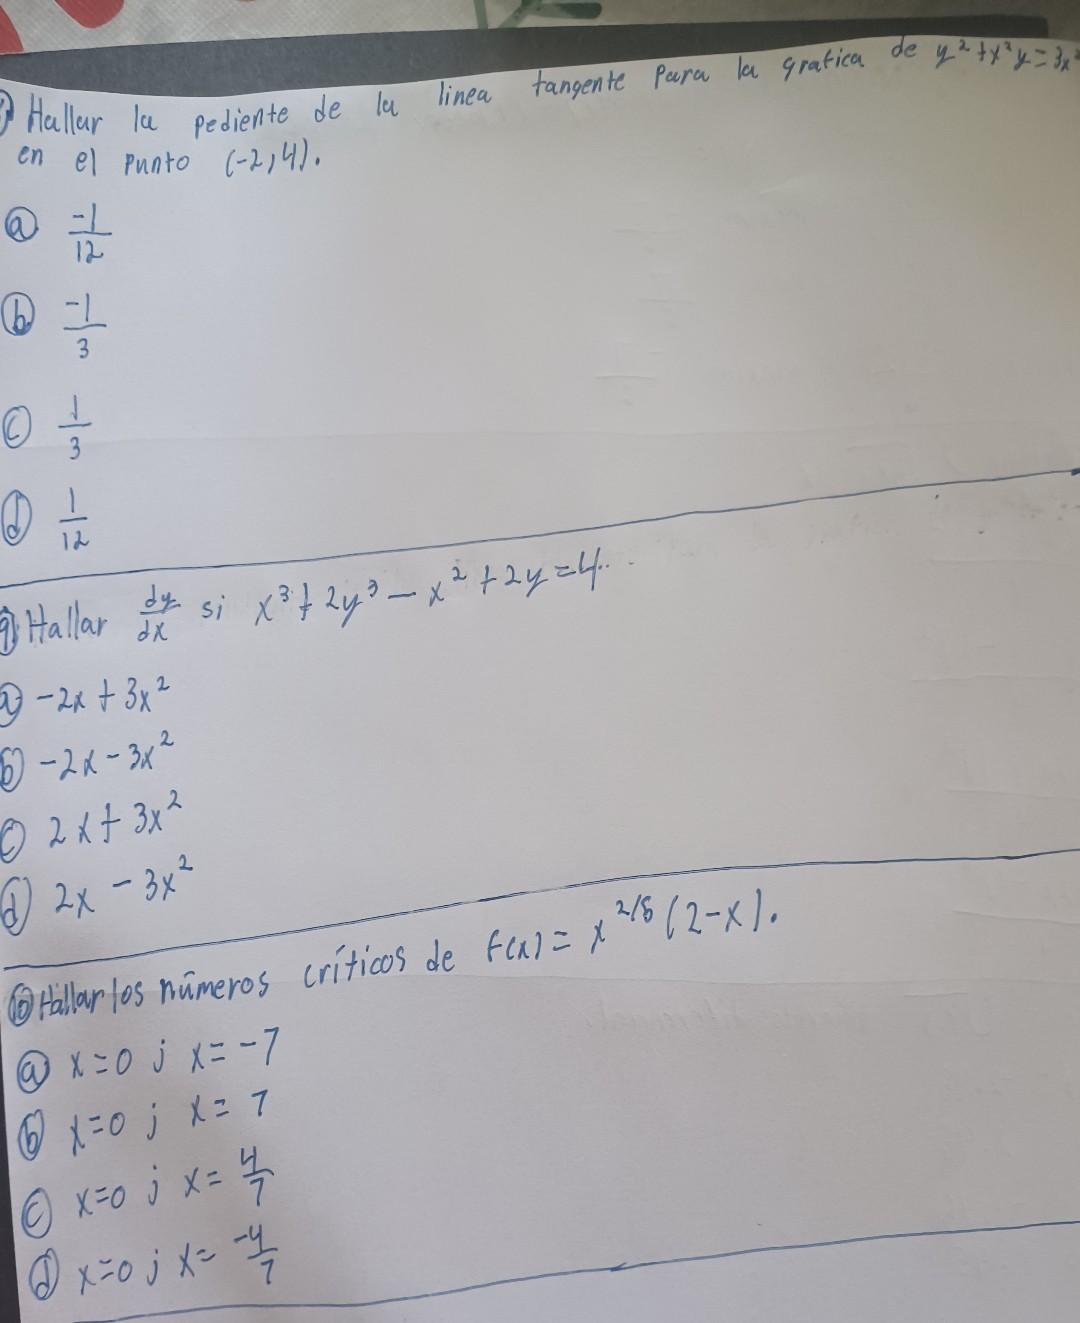 Hallar la pediente de la linea tangente para la grafica de y² + x²y = 3x²
en el punto (-2,4).
ⓐ -1/12
ⓑ -1/3
ⓒ 1/3
ⓓ 1/12
⑨ Hallar dy/dx si x³ + 2y³ - x² + 2y = 4.
ⓐ -2x + 3x²
ⓑ -2x - 3x²
ⓒ 2x + 3x²
ⓓ 2x - 3x²
⑩ Hallar los números críticos de f(x) = x^2/5 (2-x).
ⓐ x=0 ; x= -7
ⓑ x=0 ; x= 7
ⓒ x=0 ; x= 4/7
ⓓ x=0 ; x= -4/7